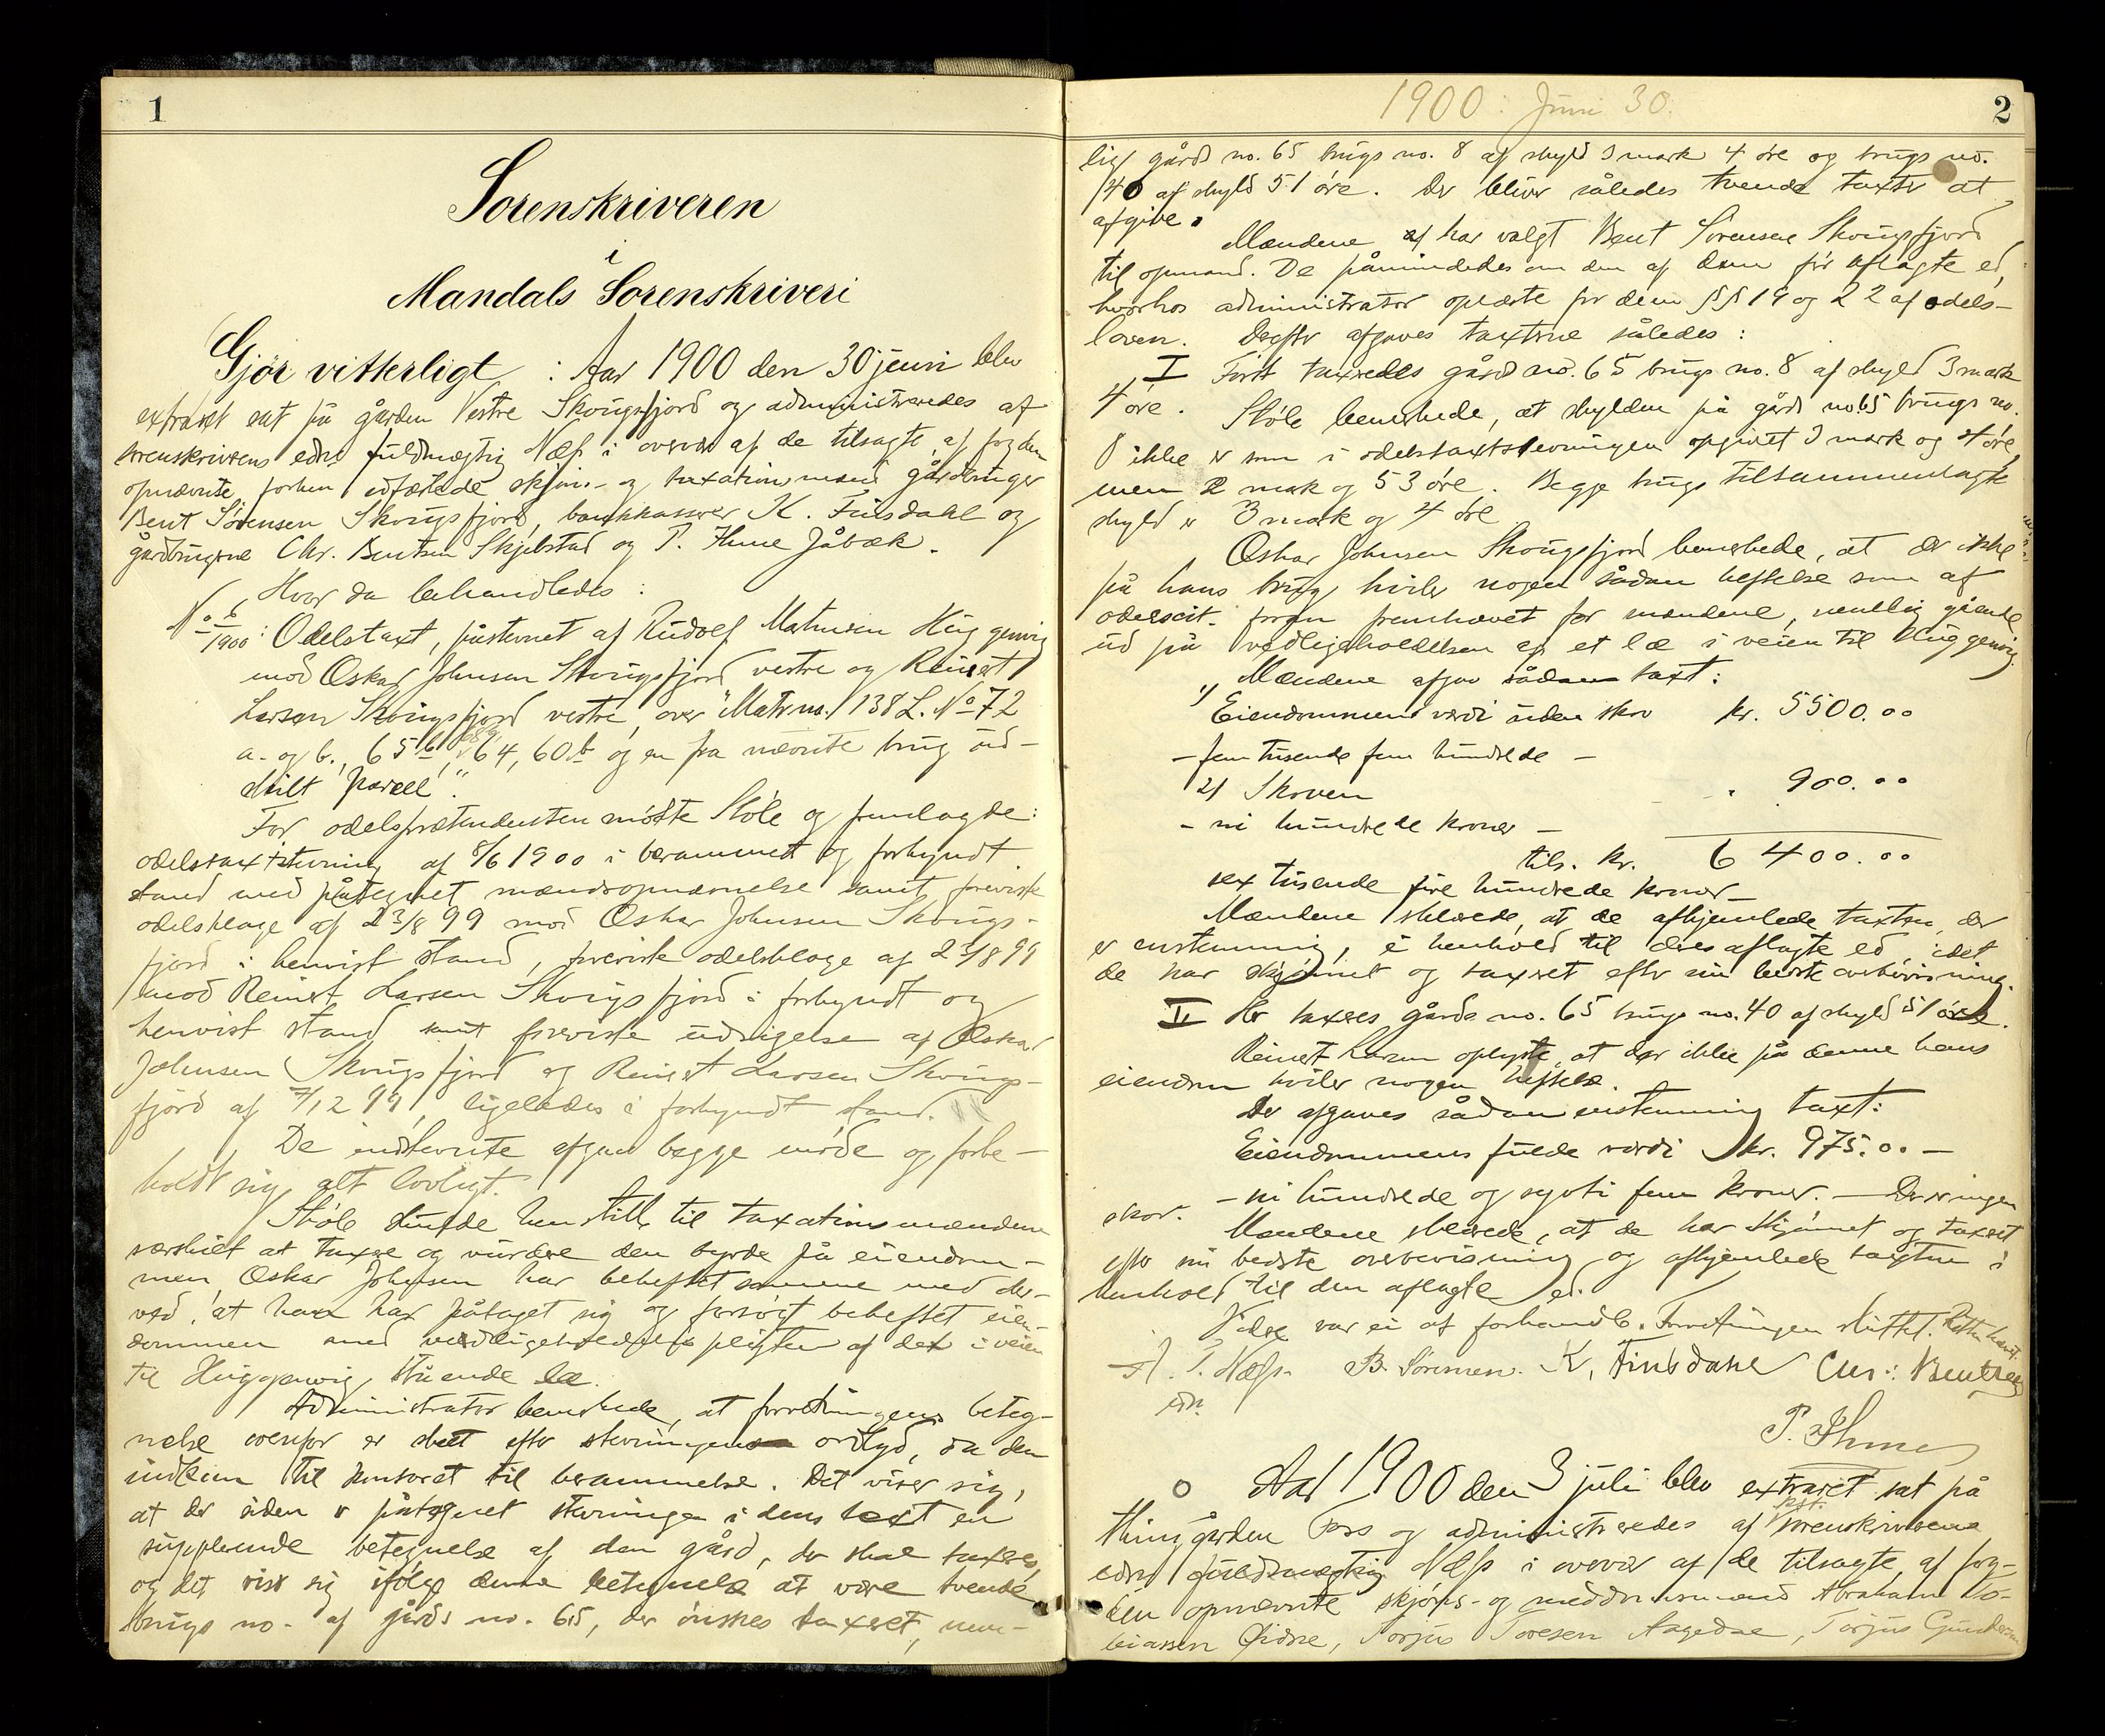 1
Sorenskriveren
i
Mandals Sorenskriveri
Gjør vitterligt : Aar 1900 den 30 juni blev
extraret sat på gården Vestre Skougsfjord og administreredes af
sorenskriverens edsv. fuldmægtig Næss i overvær af de tilsagte, af fogden
opnævnte, forhen edfæstede skjøns- og taxationsmænd gårdbruger
Bent Sørensen Skougsfjord, bankkasserer K. Finsdahl og
gårdbrugerne Chr. Bentsen Skjebstad og P. Ihme Jåbæk.
Hvor da behandledes :
No 6/1900: Odelstaxt, påstevnet af Rudolf Mathisen Huggenvig
mod Oskar Johnsen Skougsfjord vestre og Reinert
Larsen Skougsfjord vestre over "Matr.no. 138 L. No 72
a. og b., 65 b, 64, 60 b og en fra nævnte brug ud-
skilt parcel".
For odelsprætendenten mødte Støle og fremlagde:
odelstaxtstevning af 8/6 1900 i berammet og forkyndt
stand med påtegnet mændsopnævnelse samt foreviste
odelsklage af 23/8 99 mod Oskar Johnsen Skougs-
fjord i henvist stand, foreviste odelsklage af 23/8 99
mod Reinert Larsen Skougsfjord i forkyndt og
henvist stand samt foreviste udsigelse af Oskar
Johnsen Skougsfjord og Reinert Larsen Skougs-
fjord af 7/12 99, ligeledes i forkyndt stand.
De indstevnte afgav begge møde og forbe-
holdt sig alt lovligt.
Støle henstille til taxationsmændene
særskilt at taxere og vurdere den byrde på eiendom-
men Oskar Johnsen har beheftet samme med der-
ved, at han har påtaget sig og forsøgt beheftet eien-
dommen med vedligeholdelsespligten af det i veien
til Huggenvig stående læ.
Administrator bemærkede, at forretningens beteg-
nelse ovenfor er skeet efter stevningens ordlyd, da den
indkom til kontoret til berammelse. Det viser sig,
at der siden er påtegnet stevningen i dens text en
supplerende betegnelse af den gård, der skal taxeres,
og det viser sig ifølge denne betegnelse at være tvende
brugs no. af gårds no. 65, der ønskes taxeret, nem-
2
1900: Juni 30.
lig gårds no. 65 brugs no. 8 af skyld 3 mark 4 øre og brugs no.
40 af skyld 51 øre. Der bliver således tvende taxter at
afgive.
Mændene har valgt Bent Sørensen Skougsfjord
til opmand. De påmindedes om den af dem før aflagte ed,
hvorhos administrator oplæste for dem §§ 19 og 22 af odels-
loven. Derefter afgaves taxterne således :
I Først taxeredes gårds no. 65 brugs no. 8 af skyld 3 mark
4 øre. Støle bemærkede, at skylden på gårds no 65 brugs no.
8 ikke er som i odelstaxtstevningen opgivet 3 mark og 4 øre,
men 2 mark og 53 øre. Begge brugs tilsammenlagte
skyld er 3 mark og 4 øre
Oskar Johnsen Skougsfjord bemærkede, at der ikke
på hans brug hviler nogen sådan heftelse som af
odelssøit. fremhævet for mændene, nemlig gående
ud på vedligeholdelsen af et læ i veien til Huggenvig.
Mændene afgav sådan taxt:
1) Eiendommens værdi uden skov kr. 5500.00
- fem tusende fem hundrede -
2) Skoven " 900.00
- ni hundrede kroner -
tils. kr. 6 400.00
sex tusende fire hundrede kroner -
Mændene erklærede, at de afhjemlede taxten, der
er enstemmig, i henhold til deres aflagte ed idet
de har skjønnet og taxeret efter sin bedste overbevisning.
II Her taxeres gårds no. 65 brugs no. 40 af skyld 51 øre.
Reinert Larsen oplyste, at der ikke på denne hans
eiendom hviler nogen heftelse.
Der afgaves sådan enstemmig taxt:
Eiendommens fulde værdi kr. 975.00 -
- ni hundrede og sytti fem kroner. - Der er ingen
skov.
Mændene erklærede, at de har skjønnet og taxeret
efter sin bedste overbevisning og afhjemlede taxten i
henhold til den aflagte ed.
Videre var ei at forhandle. Forretningen sluttet. Retten hævet.
A. P. Næss. B. Sørensen. K. Finsdahl Chr: Bentsen
edsv.
P. Ihme
Aar 1900 den 3 juli blev extraret sat på
thinggården Foss og administreredes af kst. sorenskriverens
edsv. fuldmægtig Næss i overvær af de tilsagte, af fog-
den opnævnte skjøns- og meddomsmænd Abraham To-
biassen Øidne, Torjus Toresen Aagedal, Torjus Gundersen